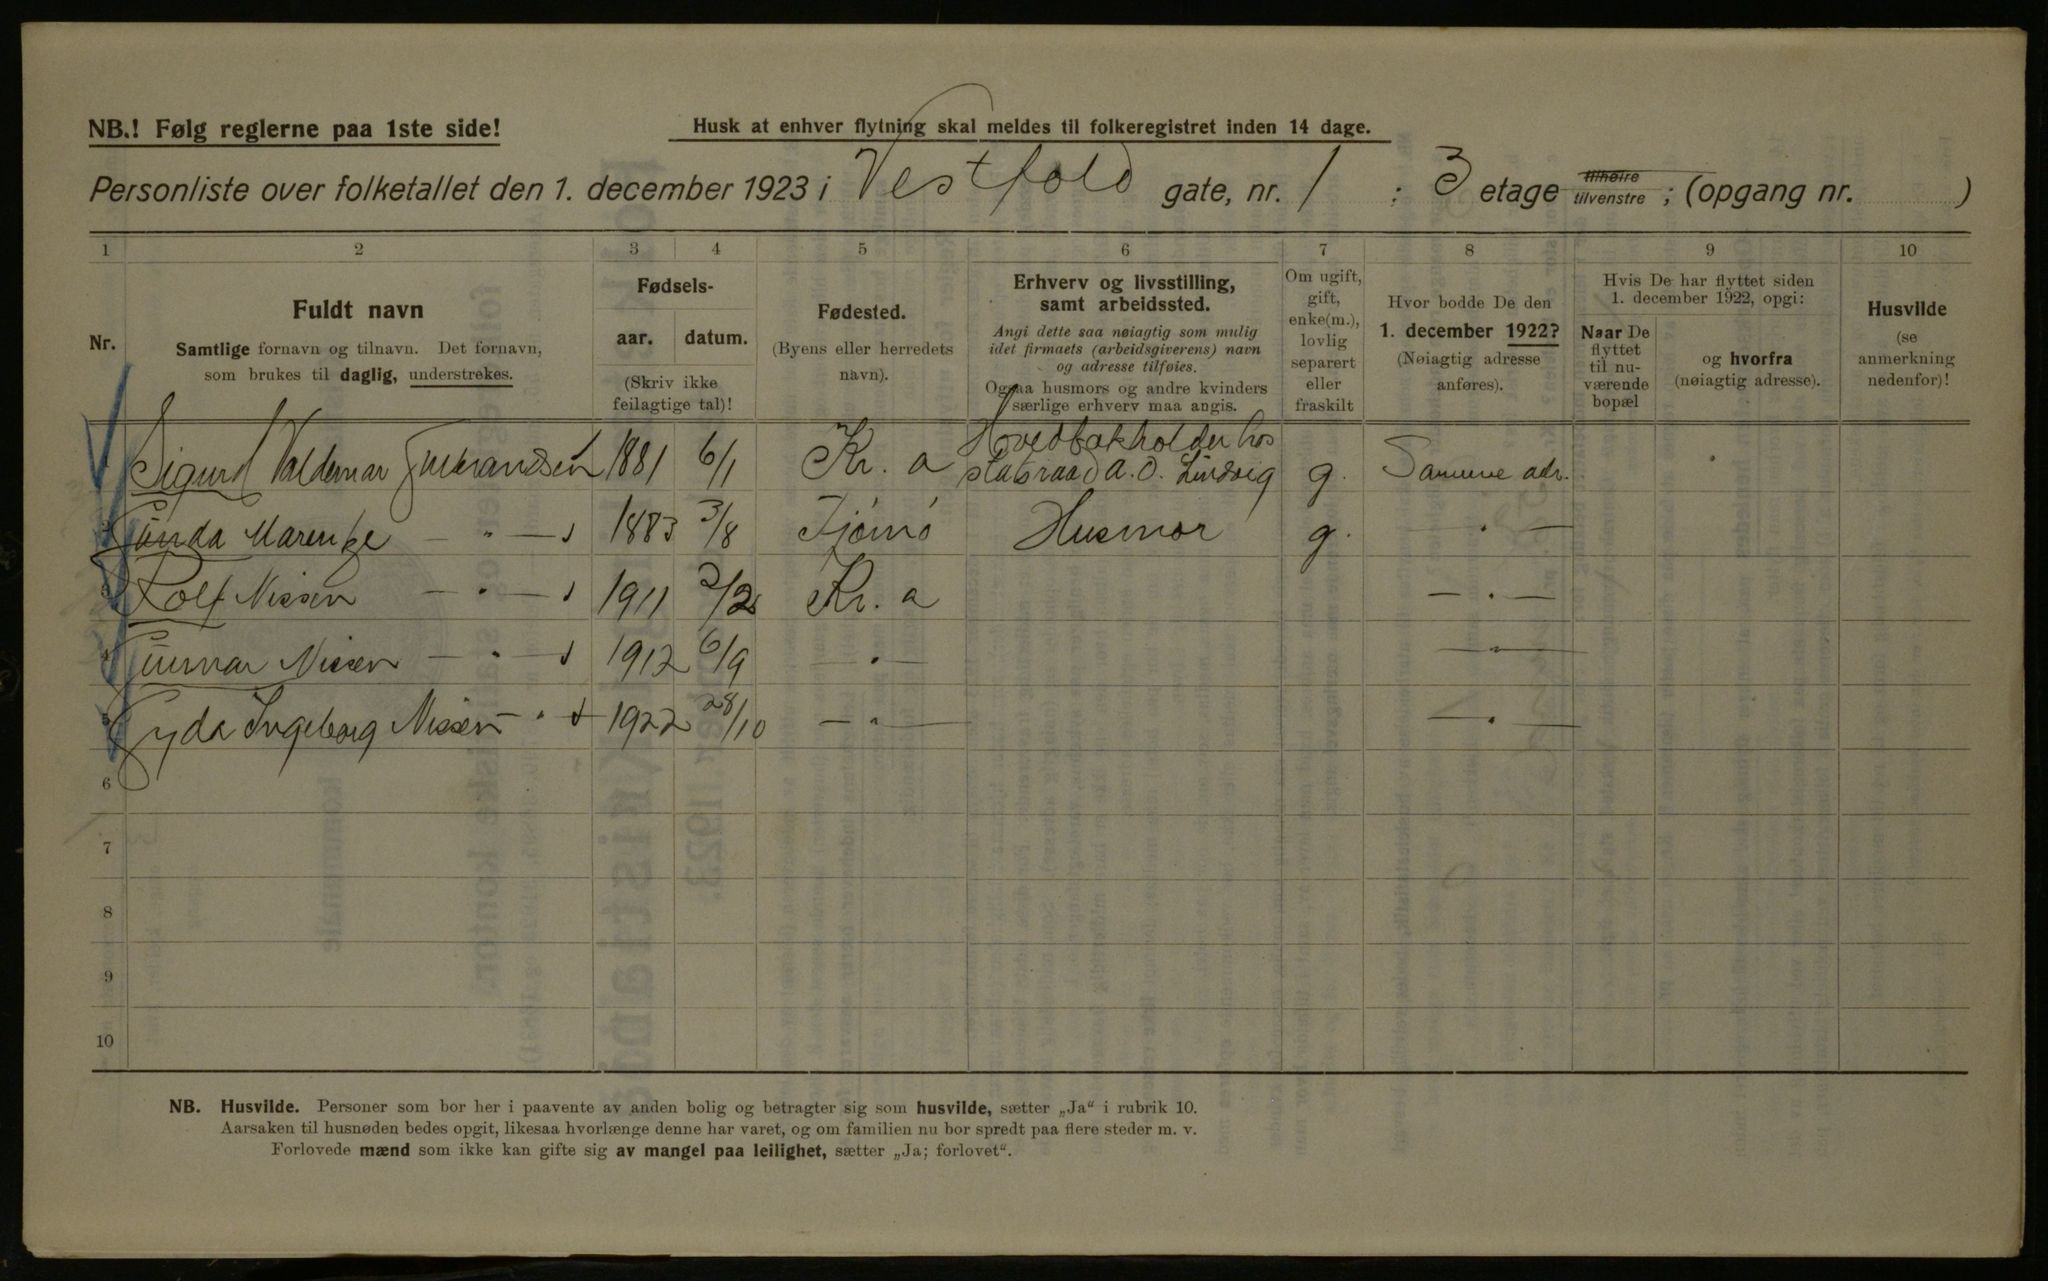 NB.! Følg reglerne paa 1ste side!
Husk at enhver flytning skal meldes til folkeregistret inden 14 dage.
Personliste over folketallet den 1. december 1923 i Vestfold gate, nr. 1 : 3 etage tilhøire tilvenstre ; (opgang nr. )
1 2 3 4 5 6 7 8 9 10
Nr.
Fuldt navn
Samtlige fornavn og tilnavn. Det fornavn,
som brukes til daglig, understrekes.
Fødsels-
aar. datum.
(Skriv ikke
feilagtige tal)!
Fødested.
(Byens eller herredets
navn).
Erhverv og livsstilling,
samt arbeidssted.
Angi dette saa nøiagtig som mulig
idet firmaets (arbeidsgiverens) navn
og adresse tilføies.
Ogsaa husmors og andre kvinders
særlige erhverv maa angis.
Om ugift,
gift,
enke(m.),
lovlig
separert
eller
fraskilt
Hvor bodde De den
1. december 1922?
(Nøiagtig adresse
anføres).
Hvis De har flyttet siden
1. december 1922, opgi:
Naar De
flyttet
til nu-
værende
bopæl
og hvorfra
(nøiagtig adresse).
Husvilde
(se
anmerkning
nedenfor)!
Sigurd Valdemar 1881 6/1 Kr. a Hovedbokholder hos
statsraad A. O. Lindvig g. Samme adr.
2 Marenke — " — 1883 3/8 Tjømø Husmor g. — " —
3 Rolf Nissen — " — 1911 Kr. a — " —
4 Gunnar Nissen — " — 1912 6/9 — " — — " —
5 Gyda Ingeborg Nissen — " — 1922 28/10 — " — — " —
6
7
8
9
10
NB. Husvilde. Personer som bor her i paavente av anden bolig og betragter sig som husvilde, sætter „Ja“ i rubrik 10.
Aarsaken til husnøden bedes opgit, likesaa hvorlænge denne har varet, og om familien nu bor spredt paa flere steder m. v.
Forlovede mænd som ikke kan gifte sig av mangel paa leilighet, sætter „Ja; forlovet“.